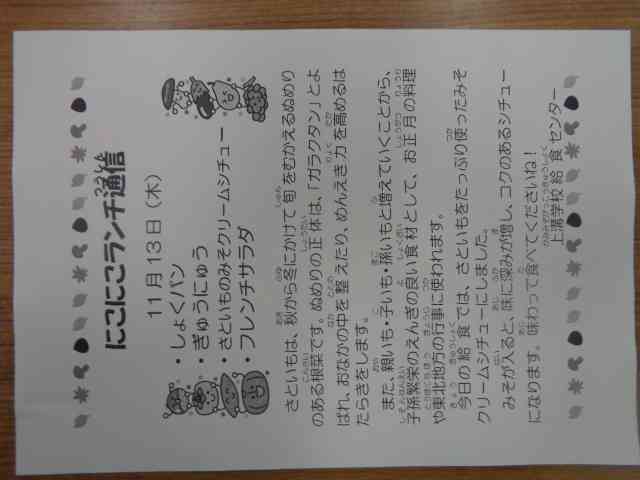 にこにこランチ通信
11月13日（木）
・しょくパン
・ぎゅうにゅう
・さといものみそクリームシチュー
・フレンチサラダ
さといもは、秋から冬にかけて旬をむかえるぬめり
のある根菜です。ぬめりの正体は、「ガラクタン」とよ
ばれ、おなかの中を整えたり、めんえき力を高めるは
たらきをします。
また、親いも・子いも・孫いもと増えていくことから、
子孫繁栄のえんぎの良い食材として、お正月の料理
や東北地方の行事に使われます。
今日の給食では、さといもをたっぷり使ったみそ
クリームシチューにしました。
みそが入ると、味に深みが増し、コクのあるシチュー
になります。味わって食べてくださいね！
上溝学校給食センター